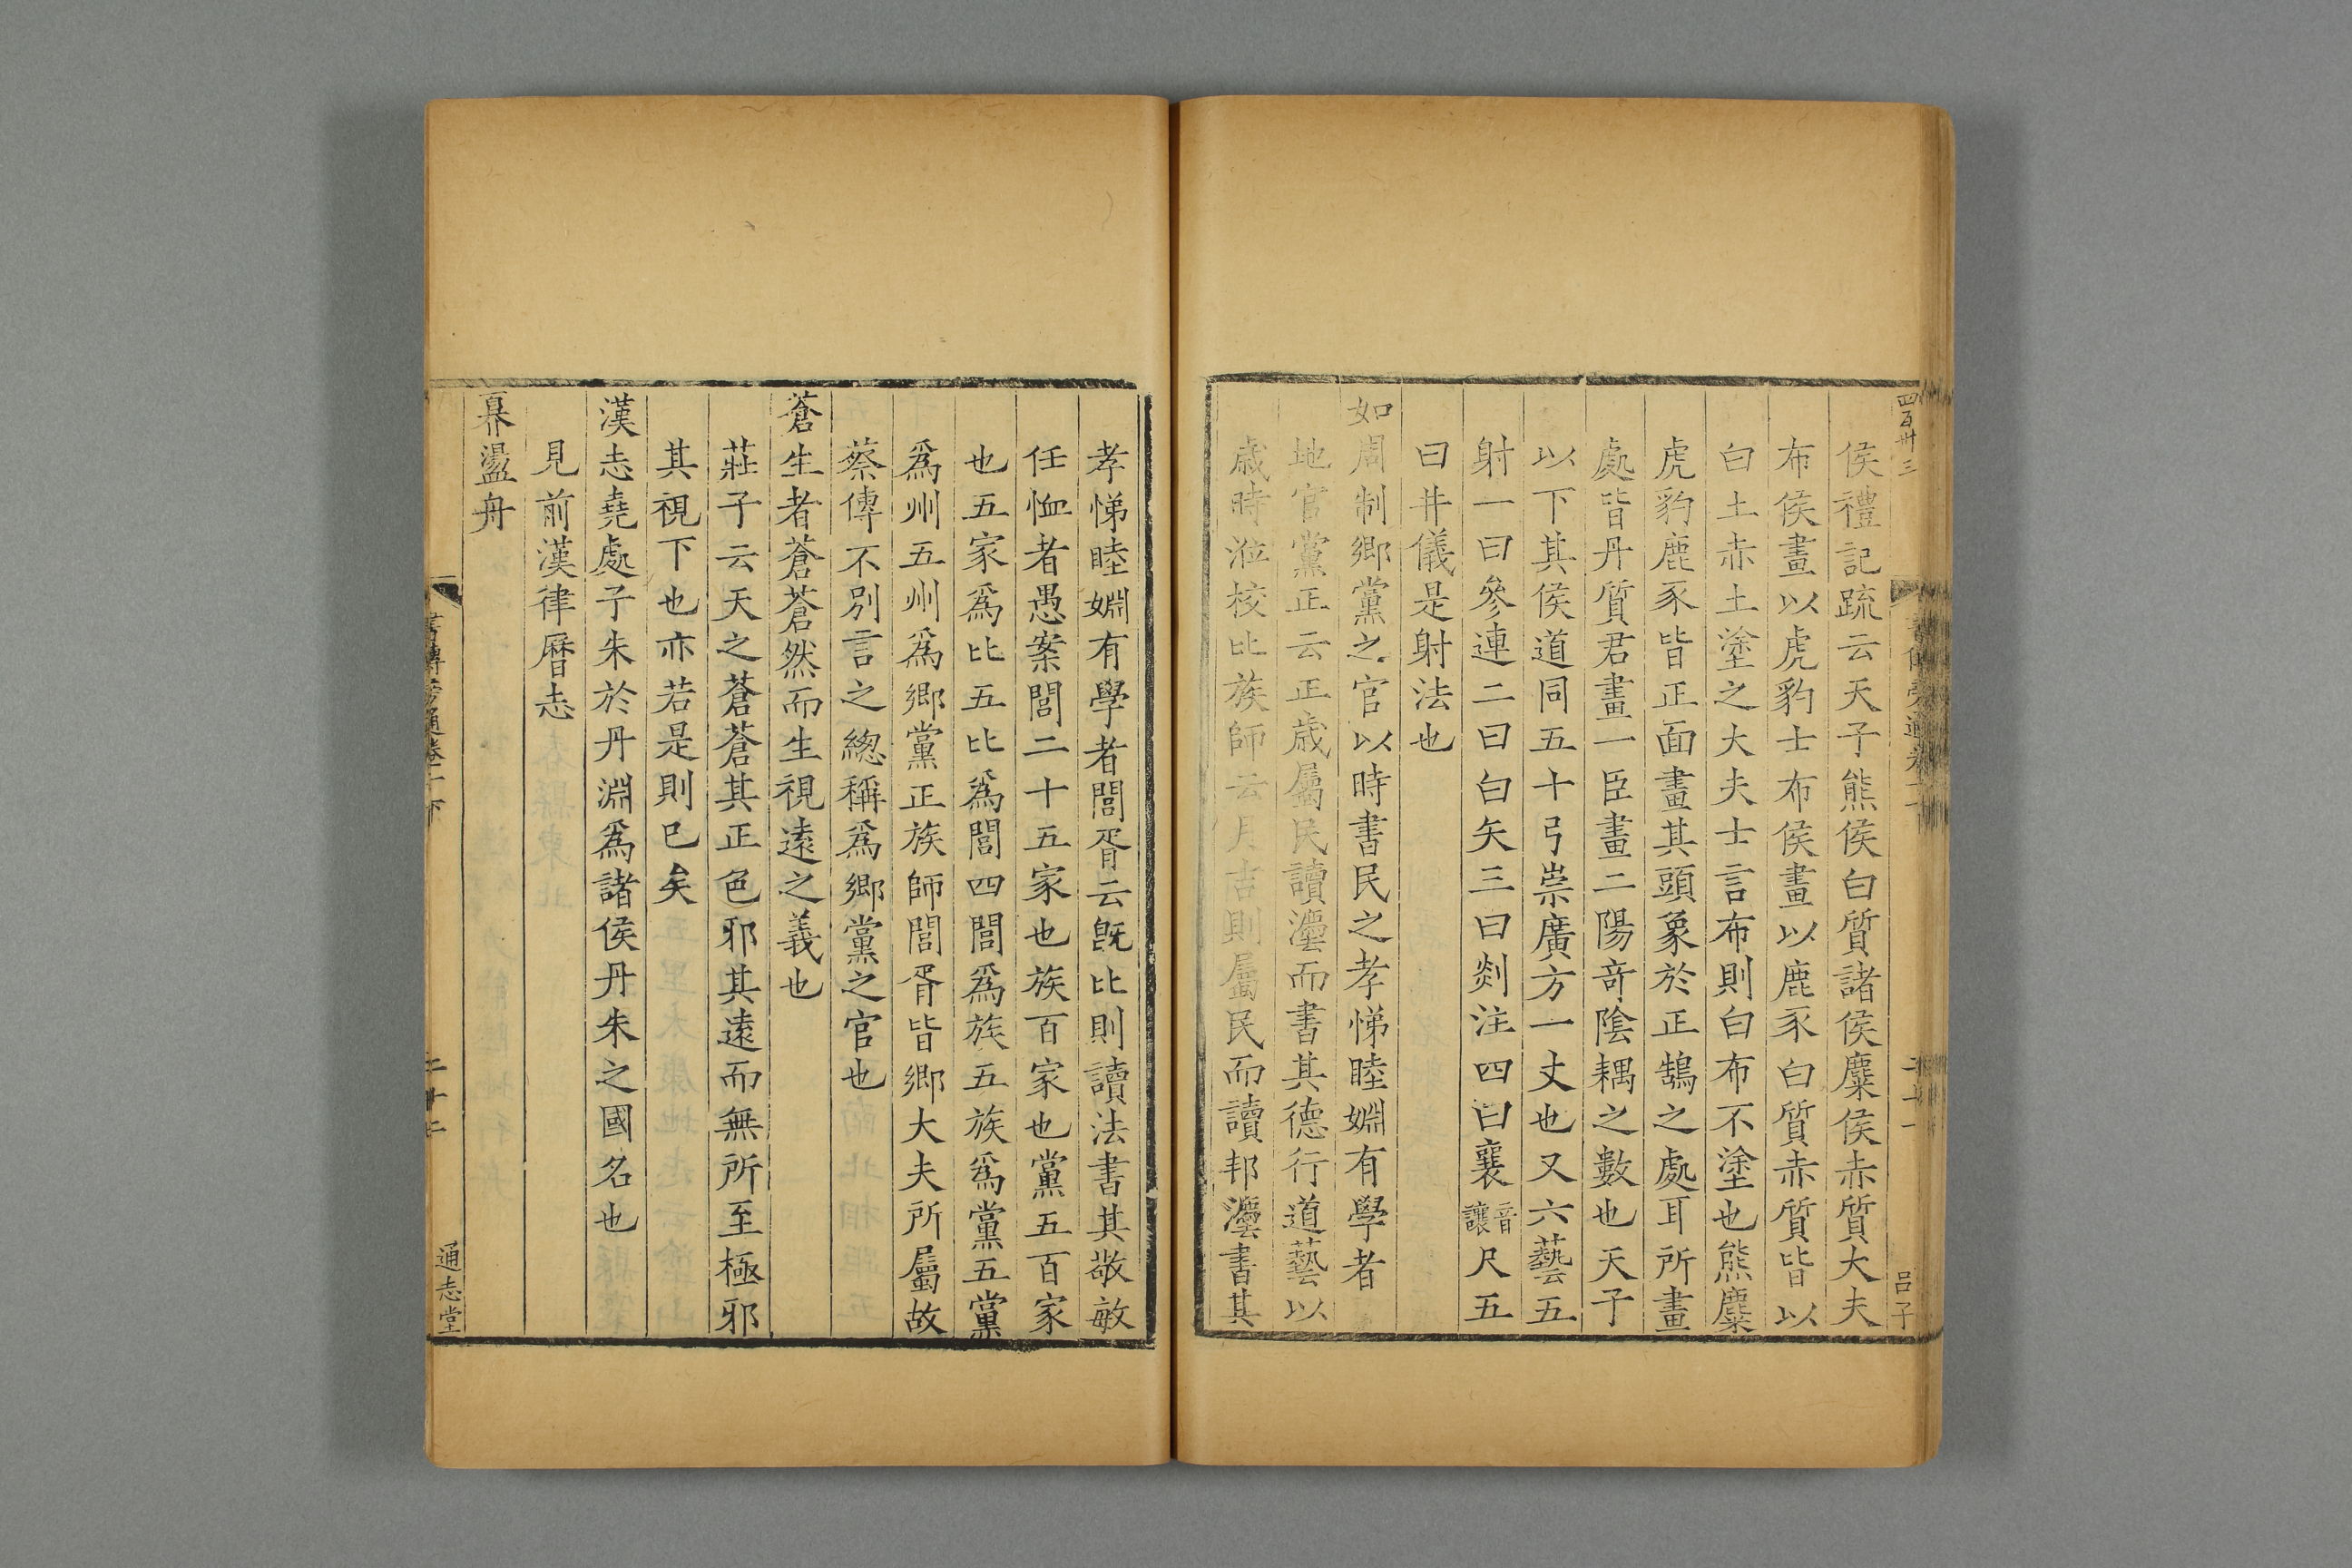 四百卅三
侯禮記疏云天子熊侯白質諸侯麋侯赤質大夫
布侯畫以虎豹士布侯畫以鹿豕白質赤質皆以
白土赤土塗之大夫士言布則白布不塗也熊麋
虎豹鹿豕皆正面畫其頭象於正鵠之處耳所畫
處皆丹質君畫一臣畫二陽奇陰耦之數也天子
以下其侯道同五十弓崇廣方一丈也又六藝五
射一曰參連二曰白矢三曰剡注四曰襄音讓尺五
曰井儀是射法也
如周制鄉黨之官以時書民之孝悌睦婣有學者
地官黨正云正歲屬民讀灋而書其德行道藝以
歲時涖校比族師云月吉則屬民而讀邦灋書其
孝悌睦婣有學者閭胥云旣比則讀法書其敬敏
任恤者愚案閭二十五家也族百家也黨五百家
也五家爲比五比爲閭四閭爲族五族爲黨五黨
爲州五州爲鄉黨正族師閭胥皆鄉大夫所屬故
蔡傳不別言之總稱爲鄉黨之官也
蒼生者蒼蒼然而生視遠之義也
莊子云天之蒼蒼其正色邪其遠而無所至極邪
其視下也亦若是則已矣
漢志堯處子朱於丹淵爲諸侯丹朱之國名也
見前漢律曆志
奡盪舟
通志堂